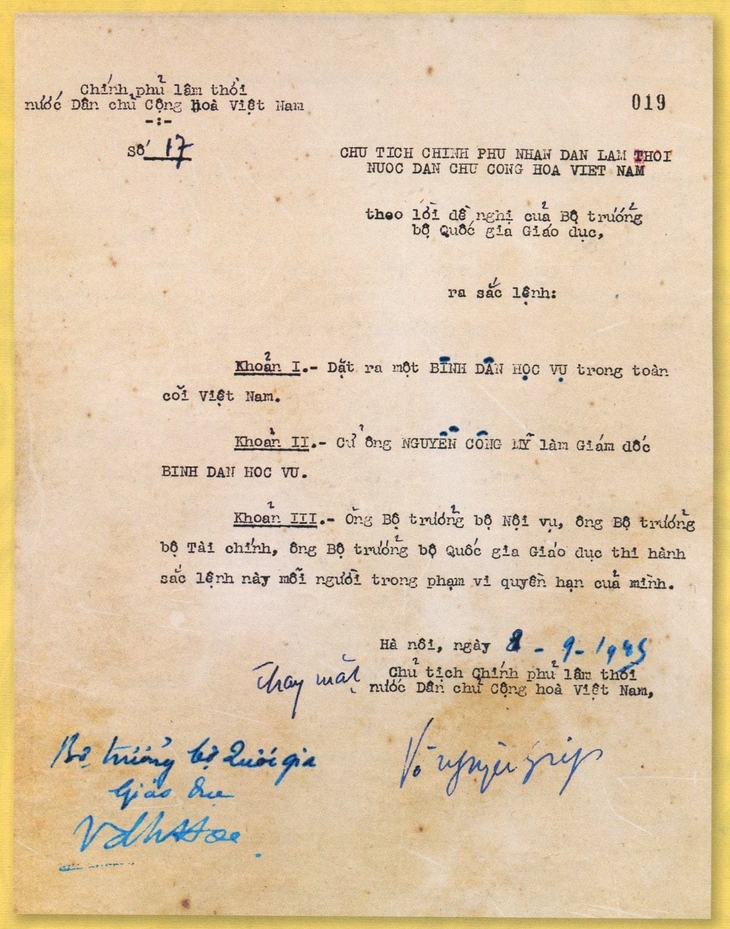 Chính phủ lâm thời
nước Dân chủ Cộng hoà Việt Nam
-:-
Số 17
019
CHU TICH CHINH PHU NHAN DAN LAM THOI
NUOC DAN CHU CONG HOA VIET NAM
theo lời đề nghị của Bộ trưởng
bộ Quốc gia Giáo dục,
ra sắc lệnh:
Khoản I.- Đặt ra một BÌNH DÂN HỌC VỤ trong toàn
cõi Việt Nam.
Khoản II.- Cử ông NGUYỄN CÔNG MỸ làm Giám đốc
BINH DAN HOC VU.
Khoản III.- Ông Bộ trưởng bộ Nội vụ, ông Bộ trưởng
bộ Tài chính, ông Bộ trưởng bộ Quốc gia Giáo dục thi hành
sắc lệnh này mỗi người trong phạm vi quyền hạn của mình.
Hà nội, ngày 8 - 9 - 1945
Thay mặt Chủ tịch Chính phủ lâm thời
nước Dân chủ Cộng hoà Việt Nam,
Bộ trưởng bộ Quốc gia
Giáo dục
Võ Nguyên Giáp